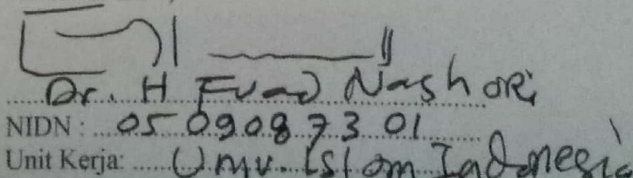 Dr. H Fuad Nashori
NIDN : 05 090873 01
Unit Kerja: Univ. Islam Indonesia